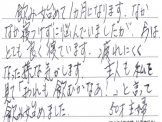 飲み始めて1か月になります。なか
なか寝つけずに悩んでいましたが、今は
とても良く寝ています。疲れにくく
なった様な気がします。主人も私を
見て「おれも飲むかなぁ」と言って
飲み始めました。
50才主婦